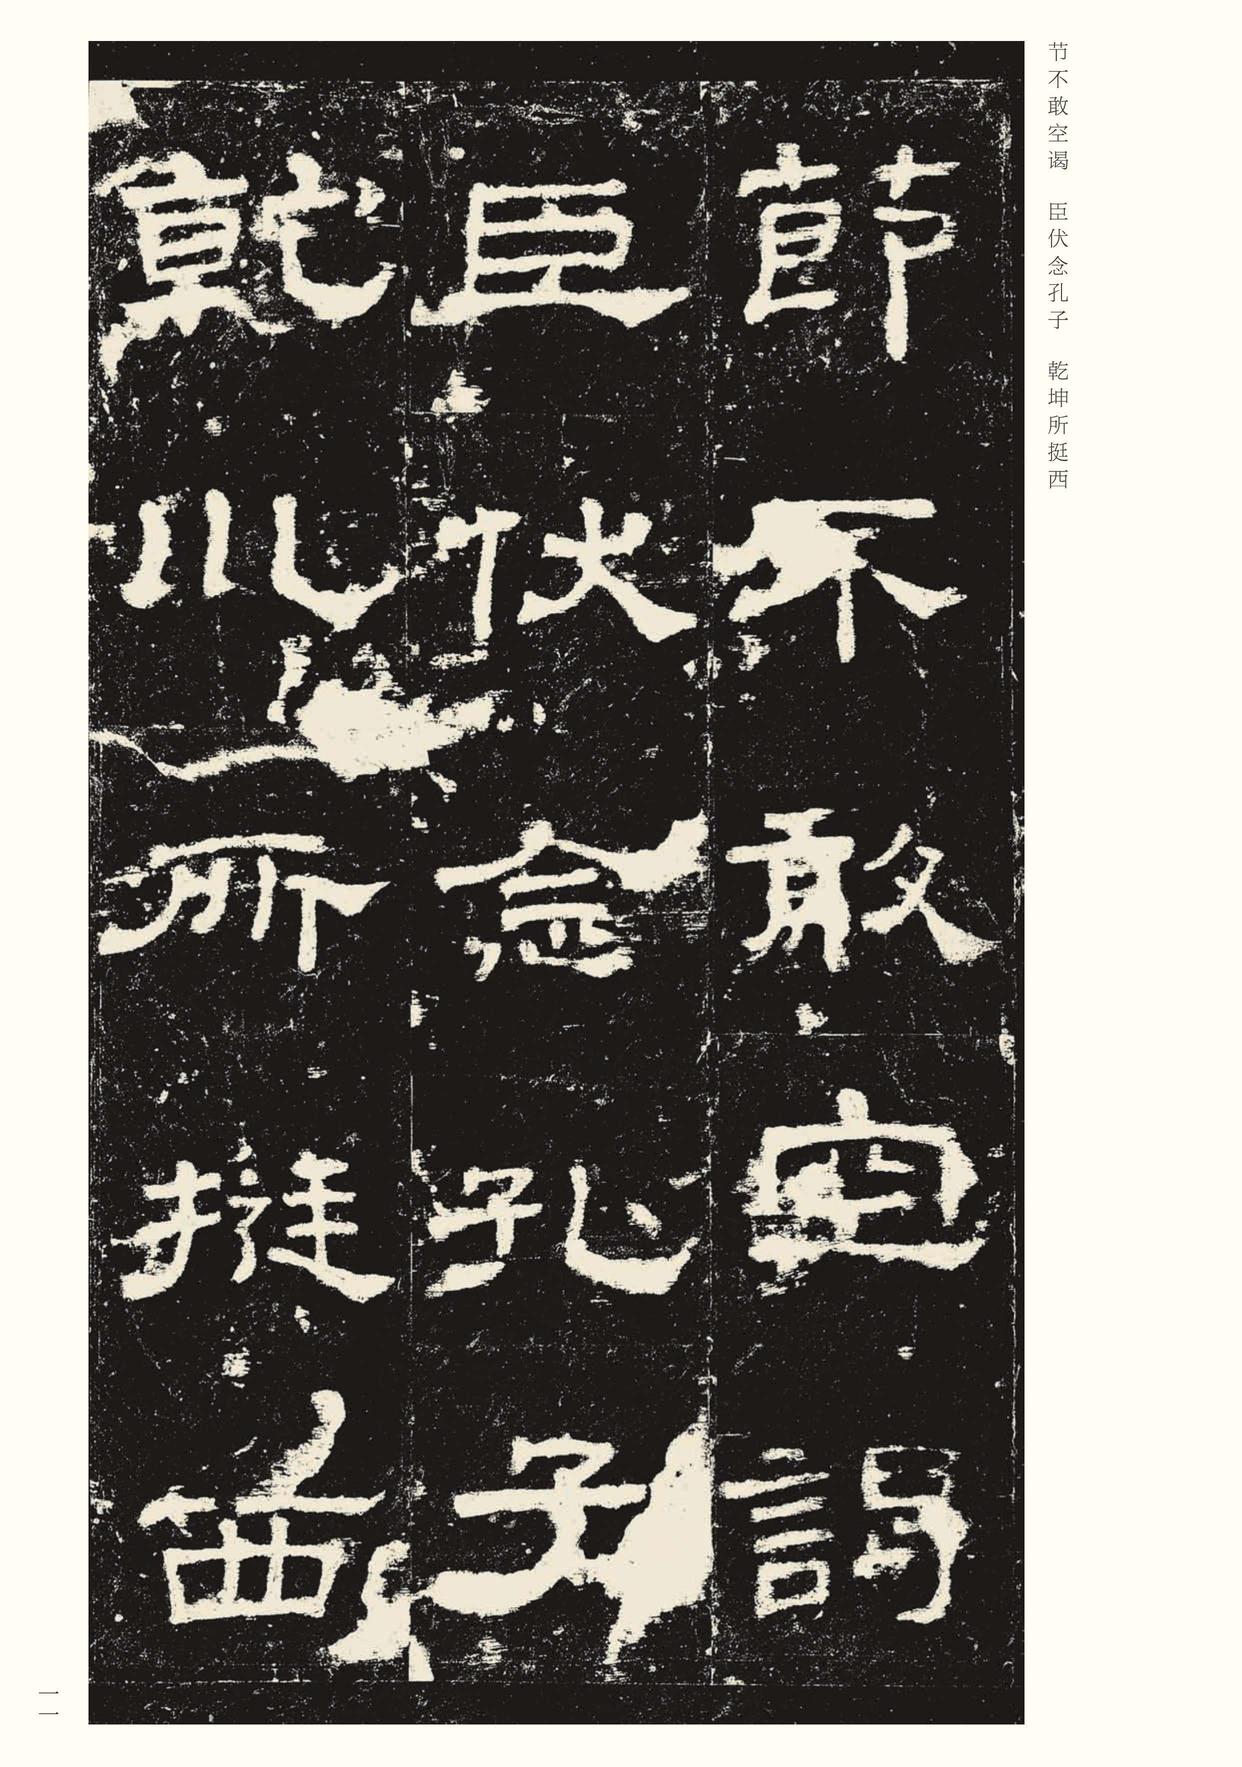 节不敢空谒　臣伏念孔子　乾坤所挺西
節不敢空謁
臣伏念孔子
乾巛所挺西
一一